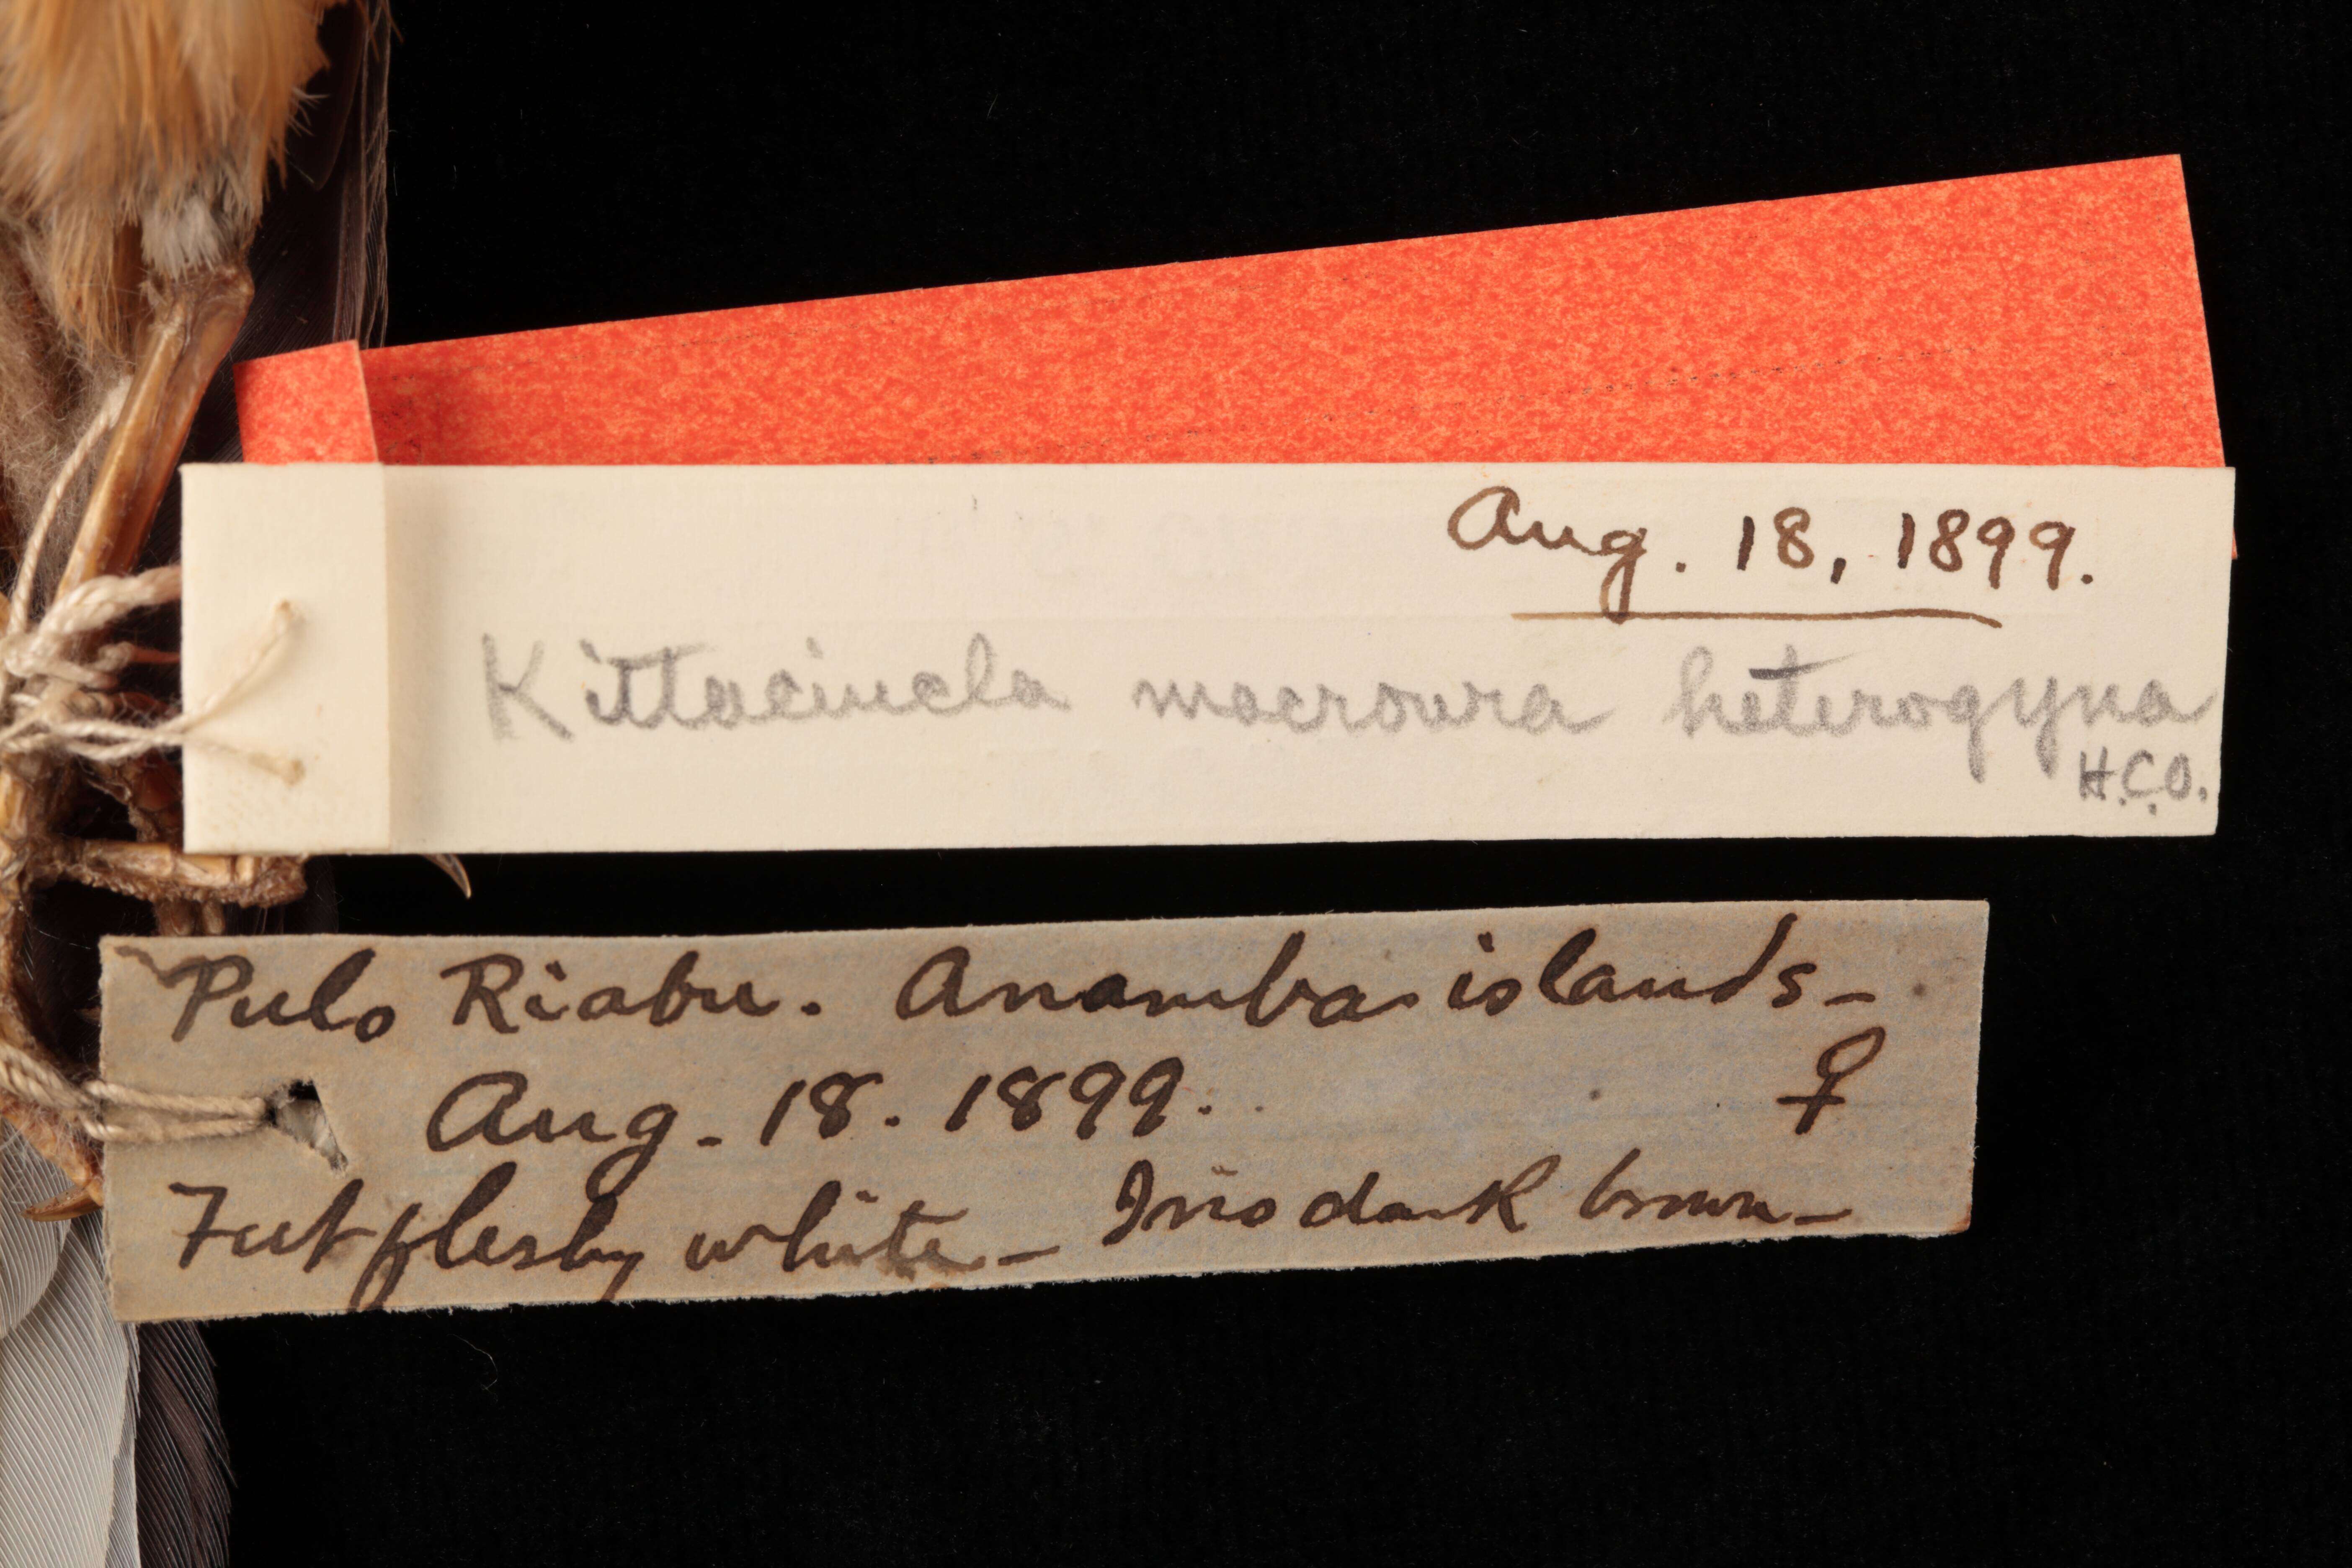 Aug. 18, 1899.
Kittacincla macroura heterogyna
H.C.O.
Pulo Riabu. Anamba islands -
Aug - 18. 1899. ♀
Feet fleshy white - Iris dark brown -